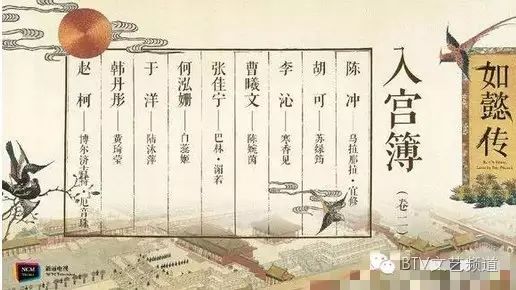 如懿传
入宫簿
（卷一）
陈冲——乌拉那拉·宜修
胡可——苏绿筠
李沁——寒香见
曹曦文——陈婉茵
张佳宁——巴林·谢若
何泓姗——白蕊姬
于洋——陆沐萍
韩丹彤——黄琦莹
赵柯——博尔济吉特·厄音珠
NCM
新丽电视
BTV文艺频道